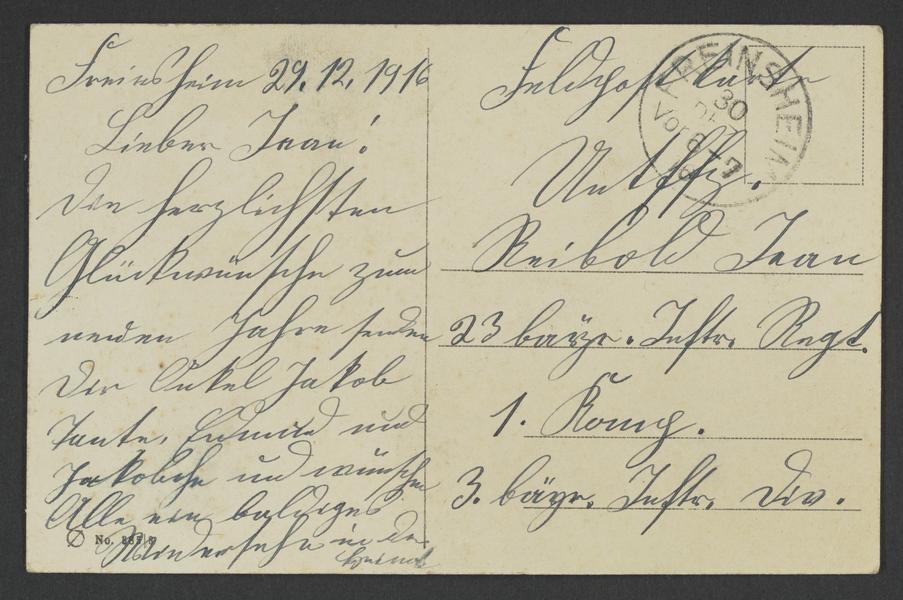 Freinsheim 29.12.1916
Lieber Jean!
Die herzlichsten
Glückwünsche zum
neuen Jahre senden
Dir Onkel Jakob
Tante, Eduard und
Jakobche und wünschen
Alle ein baldiges
Wiedersehn in der
Heimat
No.
Feldpostkarte
FREINSHEIM
30
DEZ
Vor 6-7
Untffz.
Reibold Jean
23 bayr. Inftr. Regt.
1. Komp.
3. bayr. Inftr. Div.